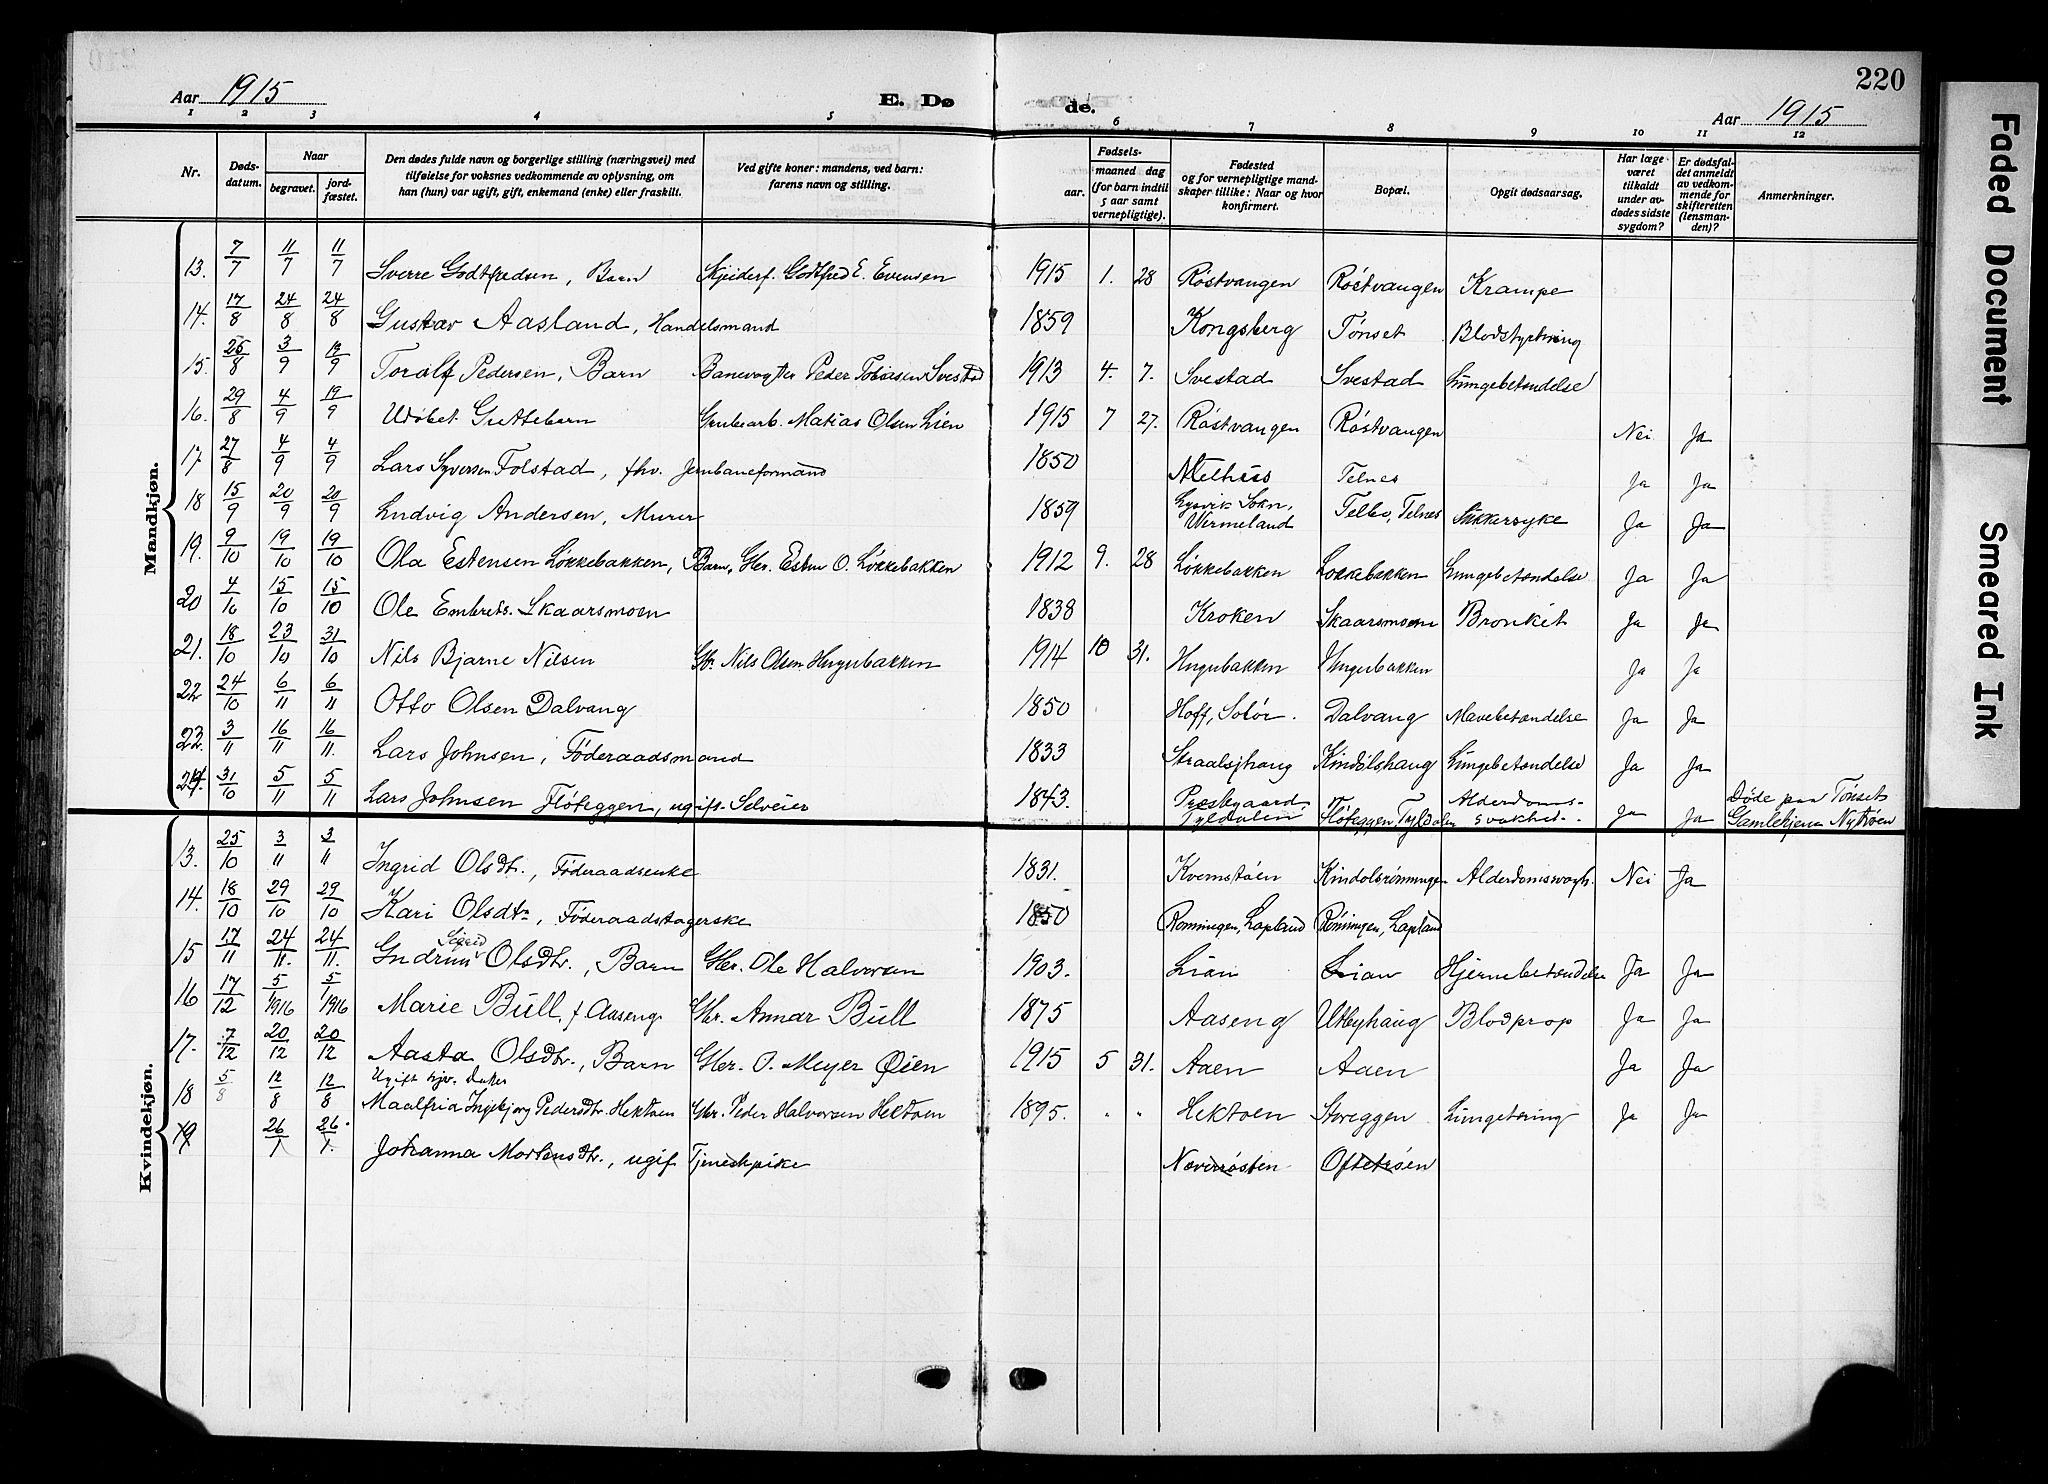 220
Aar 1915 E. Dø de. Aar 1915
1 2 3 4 5 6 7 8 9 10 11 12
Nr. Døds-datum. Naar begravet. jord-fæstet. Den dødes fulde navn og borgerlige stilling (næringsvei) med tilføielse for voksnes vedkommende av oplysning, om han (hun) var ugift, gift, enkemand (enke) eller fraskilt. Ved gifte koner: mandens, ved barn: farens navn og stilling. Fødsels- aar. maaned dag (for barn indtil 5 aar samt vernepligtige). Fødested og for vernepligtige mand-skaper tillike: Naar og hvor konfirmert. Bopæl. Opgit dødsaarsag. Har læge været tilkaldt under av-dødes sidste sygdom? Er dødsfal-det anmeldt av vedkom-mende for skifteretten (lensman-den)? Anmerkninger.
Mandkjøn.
13. 7/7 11/7 11/7 Sverre Godtfredsen, Barn Skeidersf. Godtfred E. Evensen 1915 1. 28 Røstvangen Røstvangen Krampe
14. 17/8 24/8 24/8 Gustav Aasland, Handelsmand 1859 Kongsberg Tønset Blodstyrtning
15. 25/8 3/9 19/9 Toralf Pedersen, Barn Banevogter Peder Tobiasen Svestad 1913 4. 7. Svestad Svestad Lungebetændelse
16. 29/8 4/9 19/9 Udøbt Guttebarn Grubearb. Matias Olsen Lien 1915 7 27. Røstvangen Røstvangen Nei Ja
17. 27/8 4/9 4/9 Lars Syversen Folstad, fhv. Jernbaneformand 1850 Melhus Telnes Ja Ja
18 15/9 20/9 20/9 Ludvig Andersen, Murer 1859 Lysvik Sokn, Wermeland Telbo, Telnes Sukkersyke Ja Ja
19. 9/10 19/10 19/10 Ola Estensen Løkkebakken, Barn, Gbr. Esten O. Løkkebakken 1912 9. 28 Løkkebakken Løkkebakken Lungebetændelse Ja Ja
20 4/10 15/10 15/10 Ole Embrets. Skaarsmoen 1838 Kroken Skaarsmoen Bronkit Ja Ja
21. 18/10 23/10 31/10 Nils Bjarne Nilsen Gbr. Nils Olsen Hugubakken 1914 10 31. Hugubakken Hugubakken Ja Ja
22 24/10 6/11 6/11 Otto Olsen Dalvang 1850 Hoff, Solør. Dalvang Mavebetændelse Ja Ja
23. 3/11 16/11 16/11. Lars Johnsen, Føderaadsmand 1833 Straalsjhaug Kindølshaug Lungebetændelse Ja Ja
24. 31/10 5/11 5/11 Lars Johnsen Fløteggen, ugift Selveier 1843. Præstgaard, Tyldalen Fløteggen, Tyldalen Alderdoms-svakhet. Ja Ja Døde paa Tønset Gamlehjem Nytrøen
Kvindekjøn.
13. 25/10 3/11 3/11 Ingrid Olsdtr., Føderaadsenke 1831. Kvernstøen Kindølsrønningen Alderdomssvagh. Nei Ja
14. 18/10 29/10 29/10 Kari Olsdtr, Føderaadstagerske 1850 Ronningen, Lapland Rønningen, Lapland
15 17/11 24/11. 24/11. Gudrun Sigrid Olsdtr., Barn Gbr. Ole Halvorsen 1903. Lian Lian Hjernebetændelse Ja Ja
16 17/12 5/1 1916 5/1 1916 Marie Bull, f Aaseng Gbr. Annar Bull 1875 Aaseng Utbyhaug Blodprop Ja Ja
17. 7/12 20/12 20/12 Aasta Olsdtr., Barn Gbr. O. Meyer Øien 1915 5 31. Aaen Aaen Ja Ja
18 5/8 12/8 12/8 Ugift hjv. Datter Maalfrid Ingebjørg Pedersdtr Hektoen Gbr. Peder Halvorsen Hektoen 1895. " " Hektoen Storeggen Lungetæring Ja Ja
19 26/1 26/1. Johanna Mortensdtr., ugif Tjenestpike Næverrøsten Oftetrøen
Faded Document
Smeared Ink